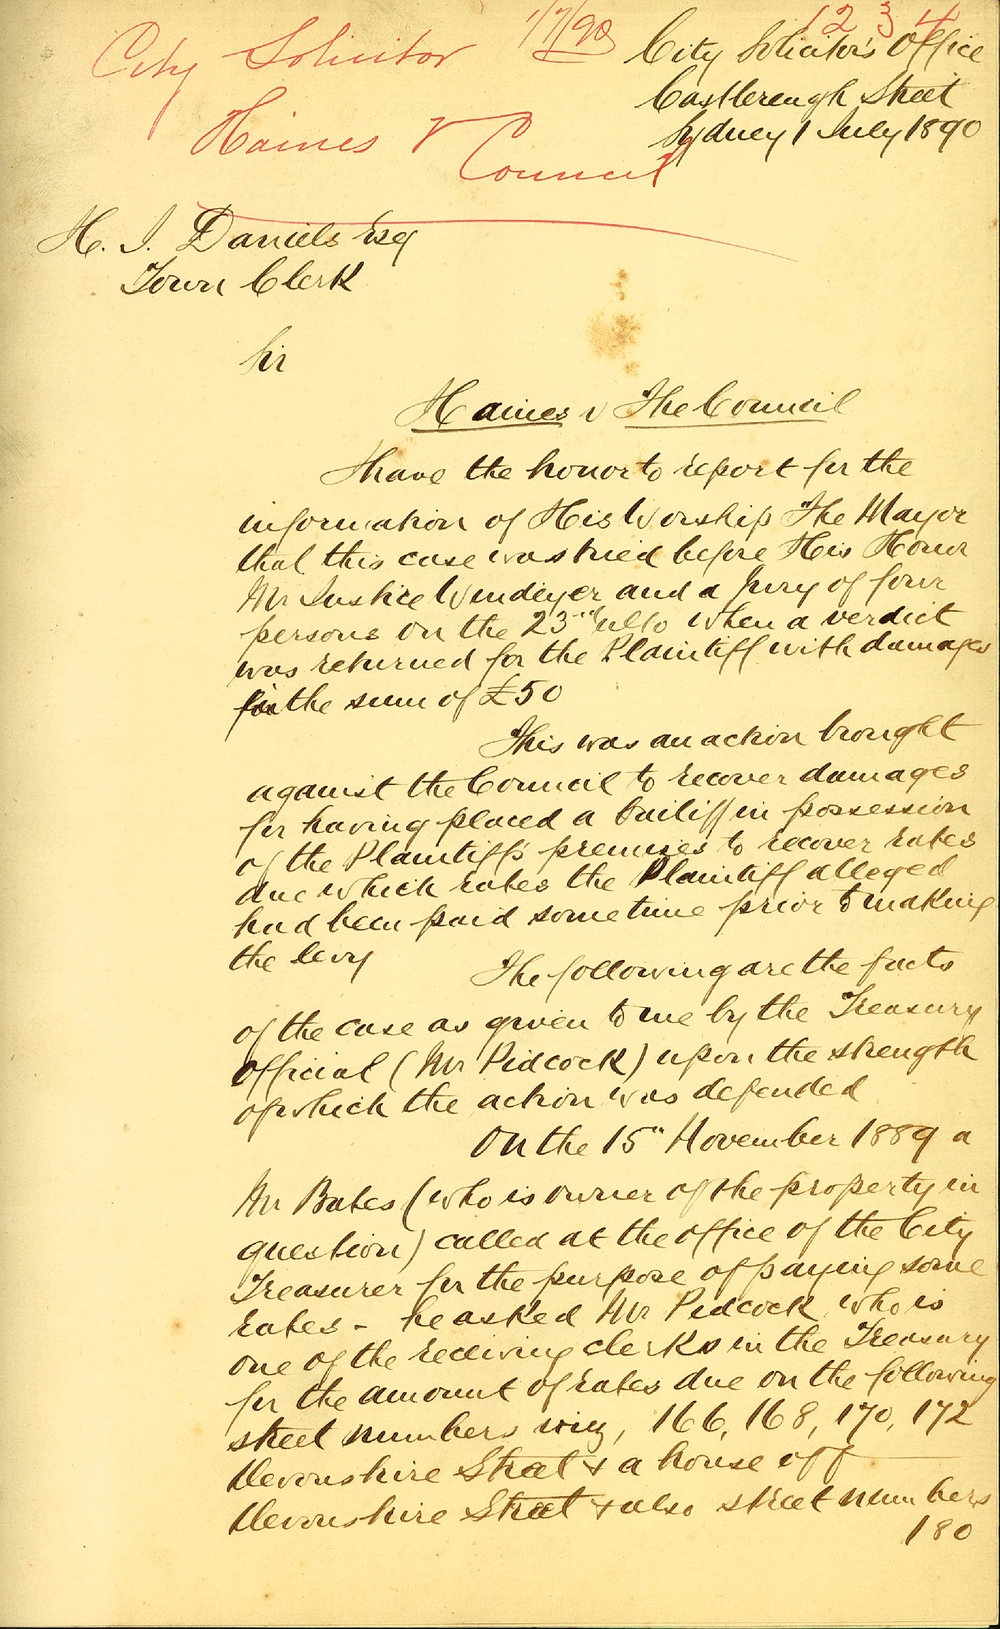 1/7/90
1 2 3 4
City Solicitor
Haines v
Council
City Solicitor's Office
Castlereagh Street
Sydney 1 July 1890
H. J. Daniels Esq
Town Clerk
Sir
Haines v The Council
I have the honor to report for the
information of His Worship The Mayor
that this case was tried before His Honor
Mr Justice Windeyer and a Jury of four
persons on the 23rd ulto when a verdict
was returned for the Plaintiff with damages
in the sum of £50
This was an action brought
against the Council to recover damages
for having placed a bailiff in possession
of the Plaintiff's premises to recover rates
due which rates the Plaintiff alleged
had been paid sometime prior to making
the levy
The following are the facts
of the case as given to me by the Treasury
Official (Mr Pidcock) upon the strength
of which the action was defended
On the 15" November 1889 a
Mr Bates (who is owner of the property in
question) called at the office of the City
Treasurer for the purpose of paying some
rates - he asked Mr Pidcock who is
one of the receiving clerks in the Treasury
for the amount of rates due on the following
street numbers viz, 166, 168, 170, 172
Devonshire Street & a house off
Devonshire Street & also street numbers
180